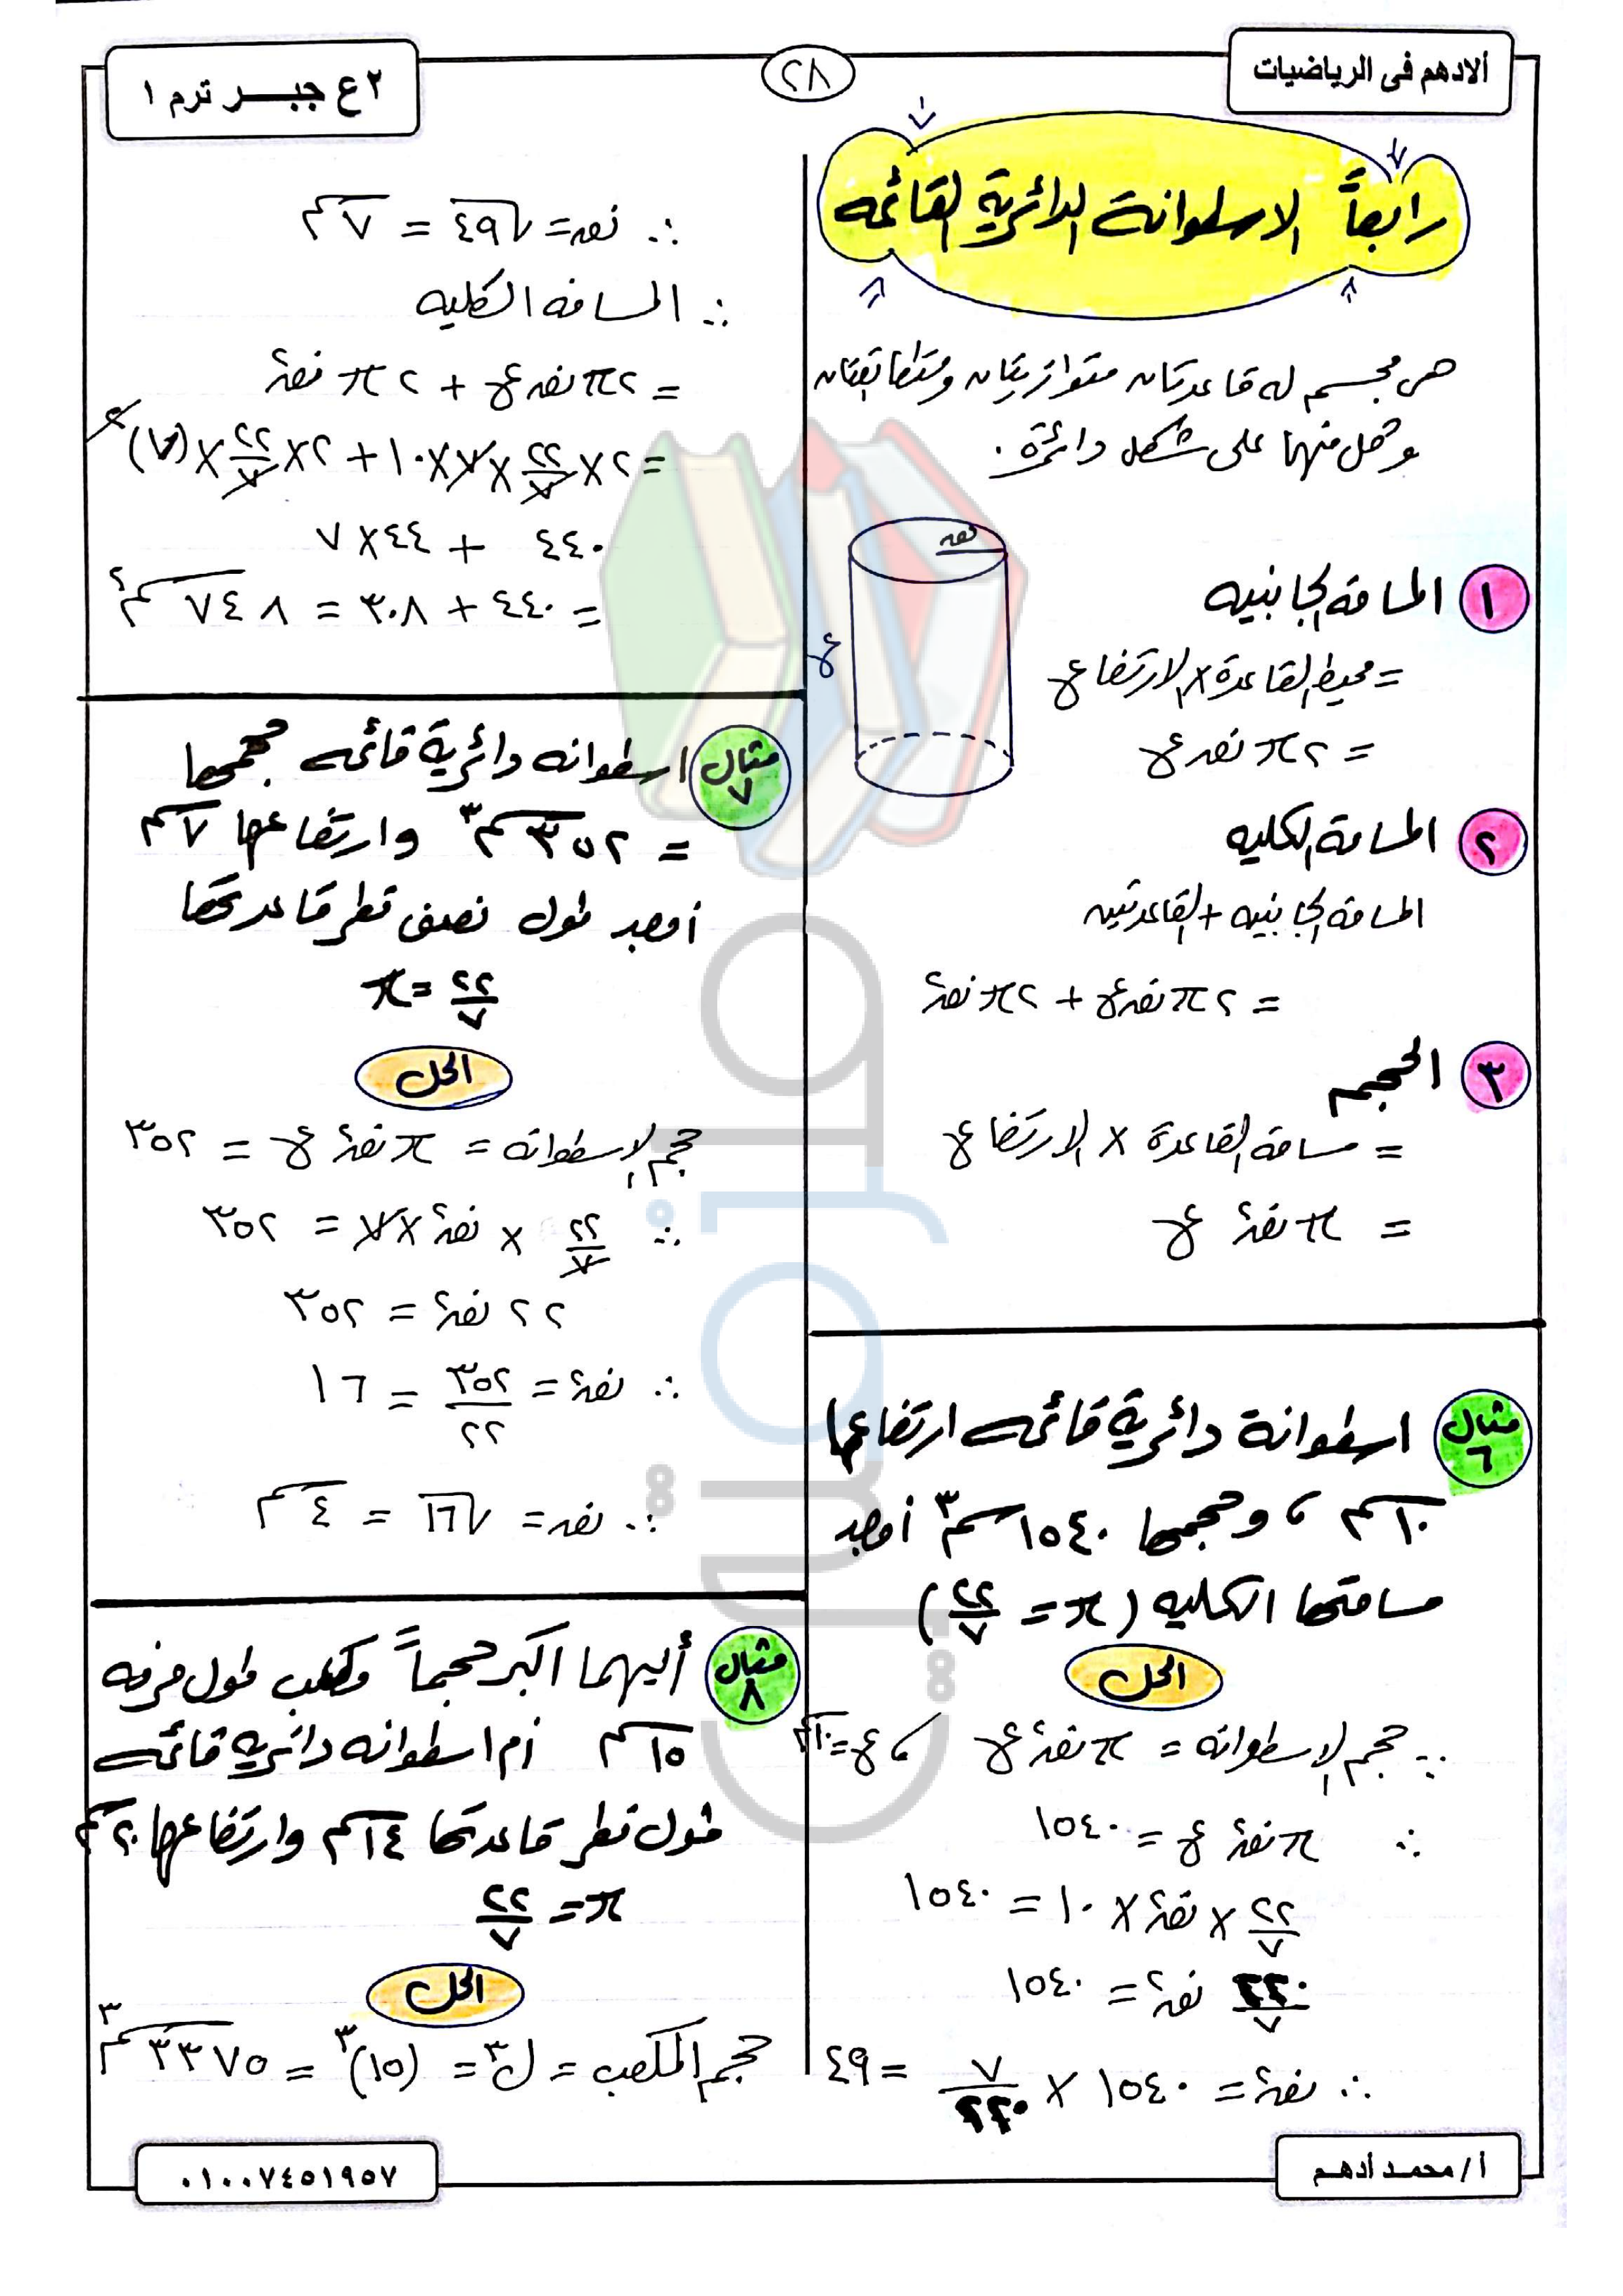 ألادهم فى الرياضيات
٢٨
٢ع جبـــر ترم ١
رابعاً الاسطوانة الدائرية القائمه
هى مجسم له قاعدتان متوازيتان ومتطابقتان
وكل منهما على شكل دائرة .
نصه
ع
١ المساحة الجانبيه
= محيط القاعدة × الارتفاع
= ٢ π نصه ع
٢ المساحة الكليه
المساحة الجانبيه + القاعدتين
= ٢ π نصه ع + ٢ π نصه٢
٣ الحجم
= مساحة القاعدة × الارتفاع
= π نصه٢ ع
مثال ٦ اسطوانة دائرية قائمه ارتفاعها
١٠سم ، وحجمها ١٥٤٠سم٣ أوجد
مساحتها الكليه (π = ٢٢/٧)
الحل
∵ حجم الاسطوانه = π نصه٢ ع ، ع = ١٠سم
∴ π نصه٢ ع = ١٥٤٠
٢٢/٧ × نصه٢ × ١٠ = ١٥٤٠
٢٢٠/٧ نصه٢ = ١٥٤٠
∴ نصه٢ = ١٥٤٠ × ٧/٢٢٠ = ٤٩
∴ نصه = √٤٩ = ٧سم
∴ المساحه الكليه
= ٢π نصه ع + ٢ π نصه٢
= ٢ × ٢٢/٧ × ٧ × ١٠ + ٢ × ٢٢/٧ × (٧)٢
٤٤٠ + ٤٤ × ٧
= ٤٤٠ + ٣٠٨ = ٧٤٨ سم٢
مثال ٧ اسطوانه دائرية قائمه حجمها
= ٣٥٢سم٣ وارتفاعها ٧سم
أوجد طول نصف قطر قاعدتها
π = ٢٢/٧
الحل
حجم الاسطوانه = π نصه٢ ع = ٣٥٢
∴ ٢٢/٧ × نصه٢ × ٧ = ٣٥٢
٢٢ نصه٢ = ٣٥٢
∴ نصه٢ = ٣٥٢/٢٢ = ١٦
∴ نصه = √١٦ = ٤سم
مثال ٨ أيهما اكبر حجماً مكعب طول حرفه
١٥سم أم اسطوانه دائريه قائمه
طول قطر قاعدتها ١٤سم وارتفاعها ٢٠سم
π = ٢٢/٧
الحل
حجم المكعب = ل٣ = (١٥)٣ = ٣٣٧٥ سم٣
أ/محمد أدهم
٠١٠٠٧٤٥١٩٥٧